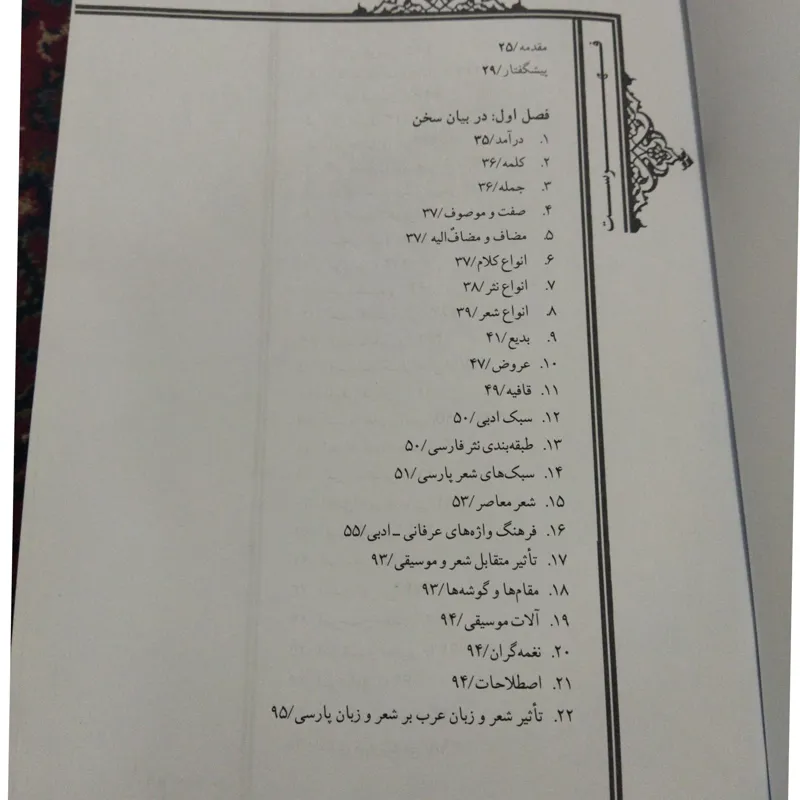 فهرست
مقدمه/۲۵
پیشگفتار/۲۹
فصل اول: در بیان سخن
۱. درآمد/۳۵
۲. کلمه/۳۶
۳. جمله/۳۶
۴. صفت و موصوف/۳۷
۵. مضاف و مضافٌ‌الیه /۳۷
۶. انواع کلام/۳۷
۷. انواع نثر/۳۸
۸. انواع شعر/۳۹
۹. بدیع/۴۱
۱۰. عروض/۴۷
۱۱. قافیه/۴۹
۱۲. سبک ادبی/۵۰
۱۳. طبقه‌بندی نثر فارسی/۵۰
۱۴. سبک‌های شعر پارسی/۵۱
۱۵. شعر معاصر/۵۳
۱۶. فرهنگ واژه‌های عرفانی ـ ادبی/۵۵
۱۷. تأثیر متقابل شعر و موسیقی/۹۳
۱۸. مقام‌ها و گوشه‌ها/۹۳
۱۹. آلات موسیقی/۹۴
۲۰. نغمه‌گران/۹۴
۲۱. اصطلاحات/۹۴
۲۲. تأثیر شعر و زبان عرب بر شعر و زبان پارسی/۹۵